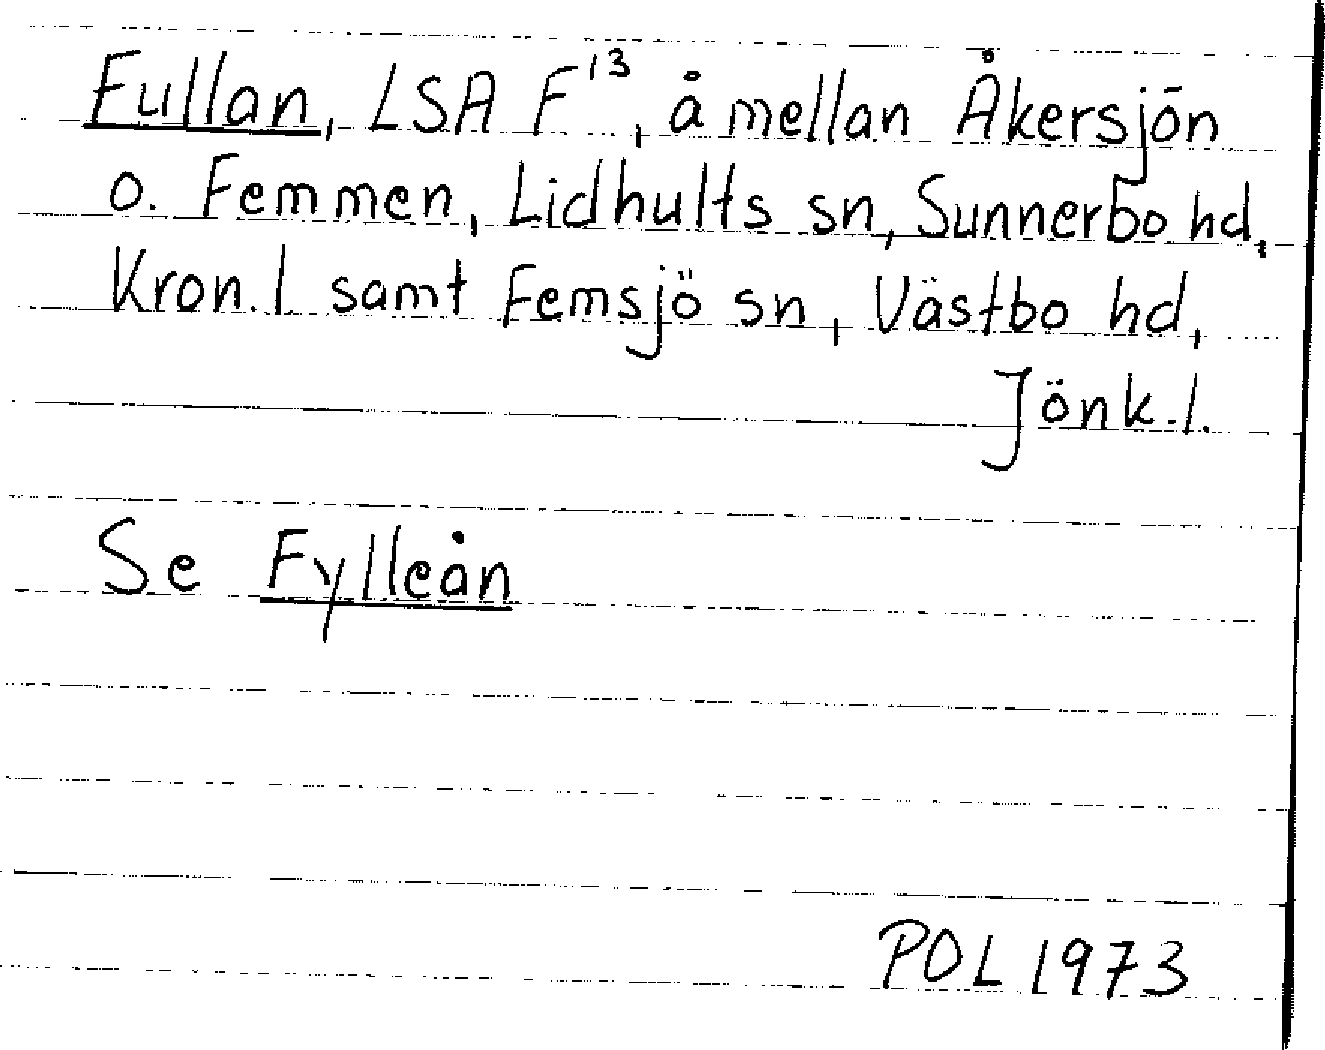 Fullan, LSA F¹³, å mellan Åkersjön
o. Femmen, Lidhults sn, Sunnerbo hd,
Kron.l samt Femsjö sn, Västbo hd,
Jönk.l.
Se Fylleån
POL 1973